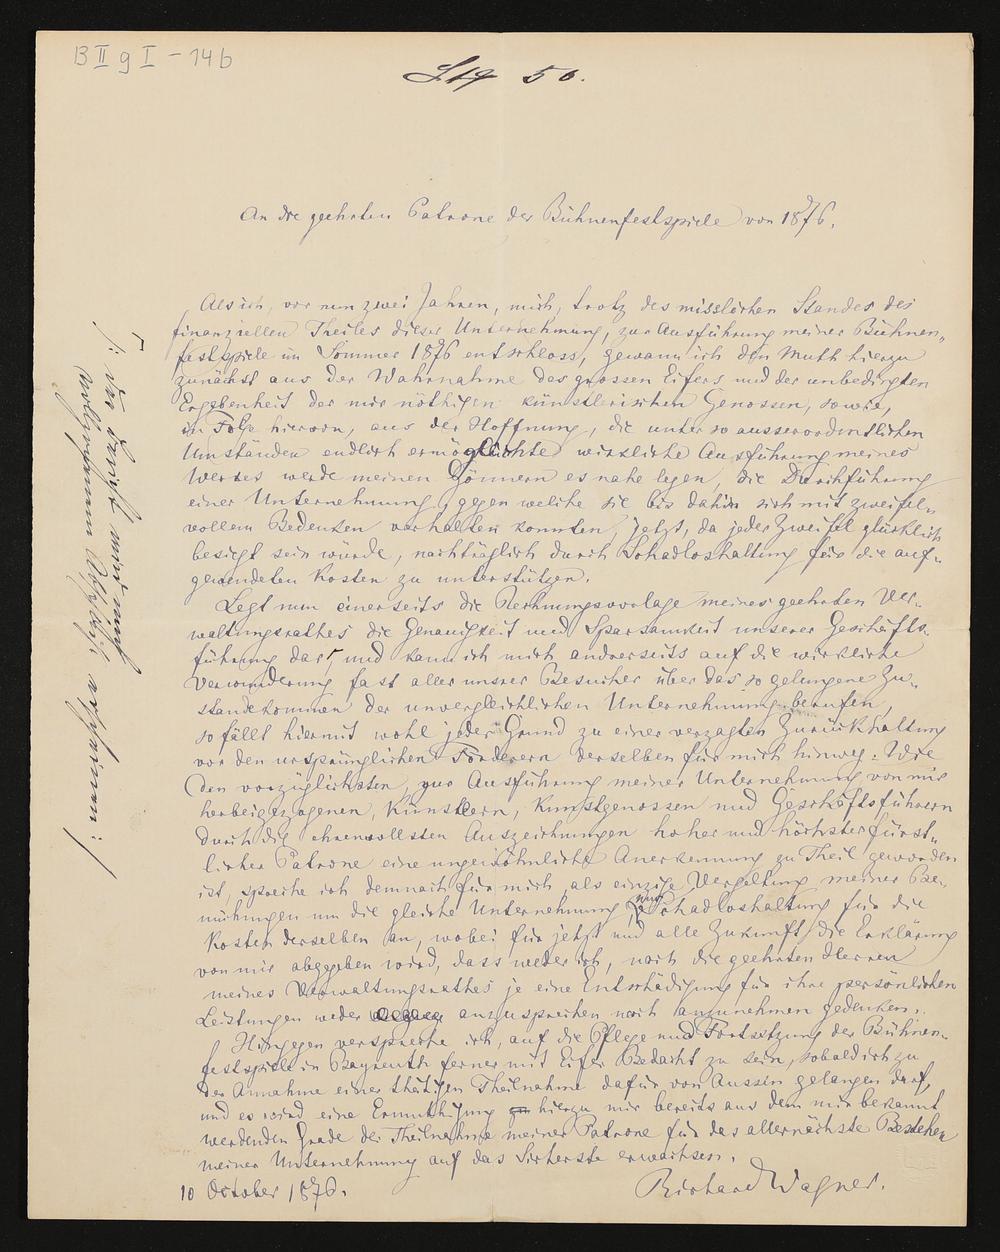 B II g I - 14b
50.
An die geehrten Patrone der Bühnenfestspiele von 1876.
Als ich, vor nun zwei Jahren, mich, trotz des misslichen Standes des
finanziellen Theiles dieser Unternehmung, zur Ausführung meiner Bühnen-
festspiele im Sommer 1876 entschloss, gewann ich den Muth hierzu
zunächst aus der Wahrnahme des grossen Eifers und der unbedingten
Ergebenheit der mir nöthigen künstlerischen Genossen, sowie,
in Folge hiervon, aus der Hoffnung, die unter so ausserordentlichen
Umständen endlich ermöglichte wirkliche Ausführung meines
Werkes werde meinen Gönnern es nahe legen, die Durchführung
einer Unternehmung, gegen welche sie bis dahin sich mit zweifel-
vollem Bedenken verhalten konnten, jetzt, da jeder Zweifel glücklich
besiegt sein würde, nachträglich durch Schadloshaltung für die auf-
gewendeten Kosten zu unterstützen.
Legt nun einerseits die Rechnungsvorlage meines geehrten Ver-
waltungsrathes die Genauigkeit und Sparsamkeit unserer Geschäfts-
führung dar, und kann ich mich andrerseits auf die wirkliche
Verwunderung fast aller unsrer Besucher über das so gelungene Zu-
standekommen der unvergleichlichen Unternehmung berufen,
so fällt hiermit wohl jeder Grund zu einer verzagten Zurückhaltung
vor den ursprünglichen Förderern derselben für mich hinweg. Wie
den vorzüglichsten, zur Ausführung meiner Unternehmung von mir
herbeigezogenen, Künstlern, Kunstgenossen und Geschäftsführern
durch die ehrenvollsten Auszeichnungen hoher und höchster fürst-
licher Patrone eine ungewöhnliche Anerkennung zu Theil geworden
ist, spreche ich demnach für mich, als einzige Vergeltung meiner Be-
mühungen um die gleiche Unternehmung, nur Schadloshaltung für die
Kosten derselben an, wobei für jetzt und alle Zukunft die Erklärung
von mir abgegeben wird, dass weder ich, noch die geehrten Herren
meines Verwaltungsrathes je eine Entschädigung für ihre persönlichen
Leistungen weder anzusprechen noch anzunehmen gedenken.
Hingegen verspreche ich, auf die Pflege und Fortsetzung der Bühnen-
festspiele in Bayreuth ferner mit Eifer Bedacht zu sein, sobald ich zu
der Annahme einer thätigen Theilnahme dafür von Aussen gelangen darf,
und es wird eine Ermuthigung hierzu mir bereits aus dem mir bekannt
werdenden Grade der Theilnahme meiner Patrone für das allernächste Bestehen
meiner Unternehmung auf das Sicherste erwachsen.
10 October 1876.
Richard Wagner.